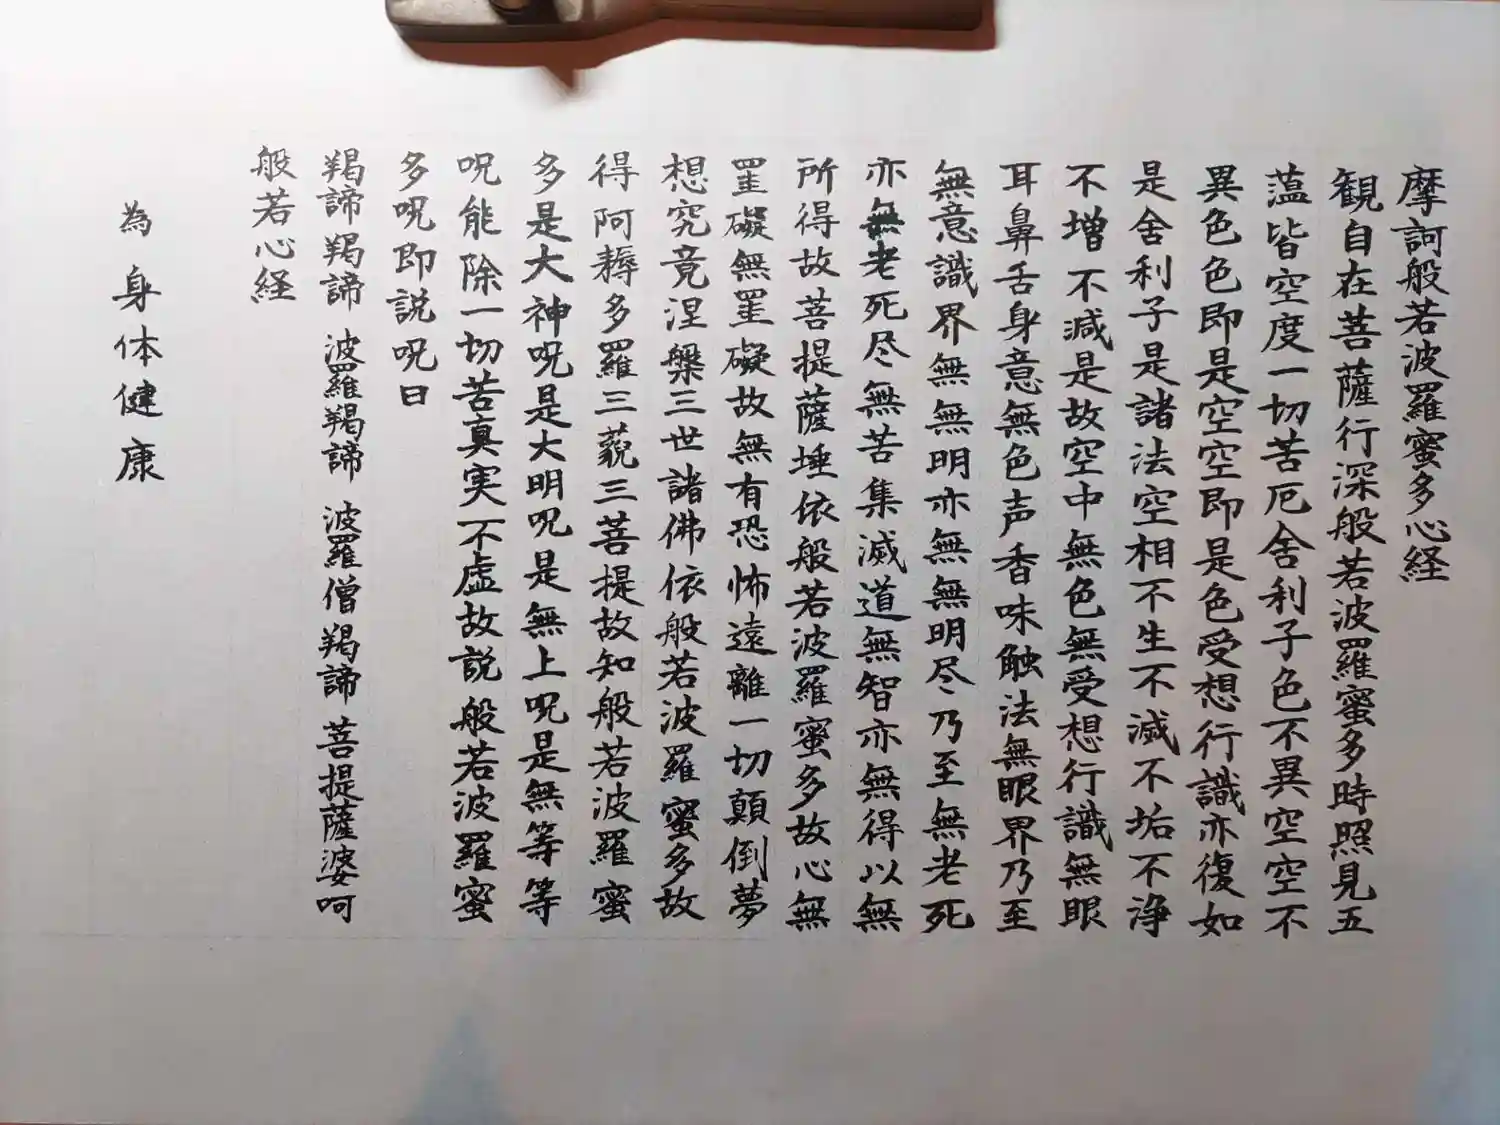 摩訶般若波羅蜜多心経
観自在菩薩行深般若波羅蜜多時照見五
薀皆空度一切苦厄舍利子色不異空空不
異色色即是空空即是色受想行識亦復如
是舍利子是諸法空相不生不滅不垢不浄
不増不減是故空中無色無受想行識無眼
耳鼻舌身意無色声香味触法無眼界乃至
無意識界無無明亦無無明尽乃至無老死
亦無老死尽無苦集滅道無智亦無得以無
所得故菩提薩埵依般若波羅蜜多故心無
罣礙無罣礙故無有恐怖遠離一切顛倒夢
想究竟涅槃三世諸佛依般若波羅蜜多故
得阿耨多羅三藐三菩提故知般若波羅蜜
多是大神呪是大明呪是無上呪是無等等
呪能除一切苦真実不虚故説般若波羅蜜
多呪即説呪曰
羯諦羯諦 波羅羯諦 波羅僧羯諦 菩提薩婆呵
般若心経
為身体健康